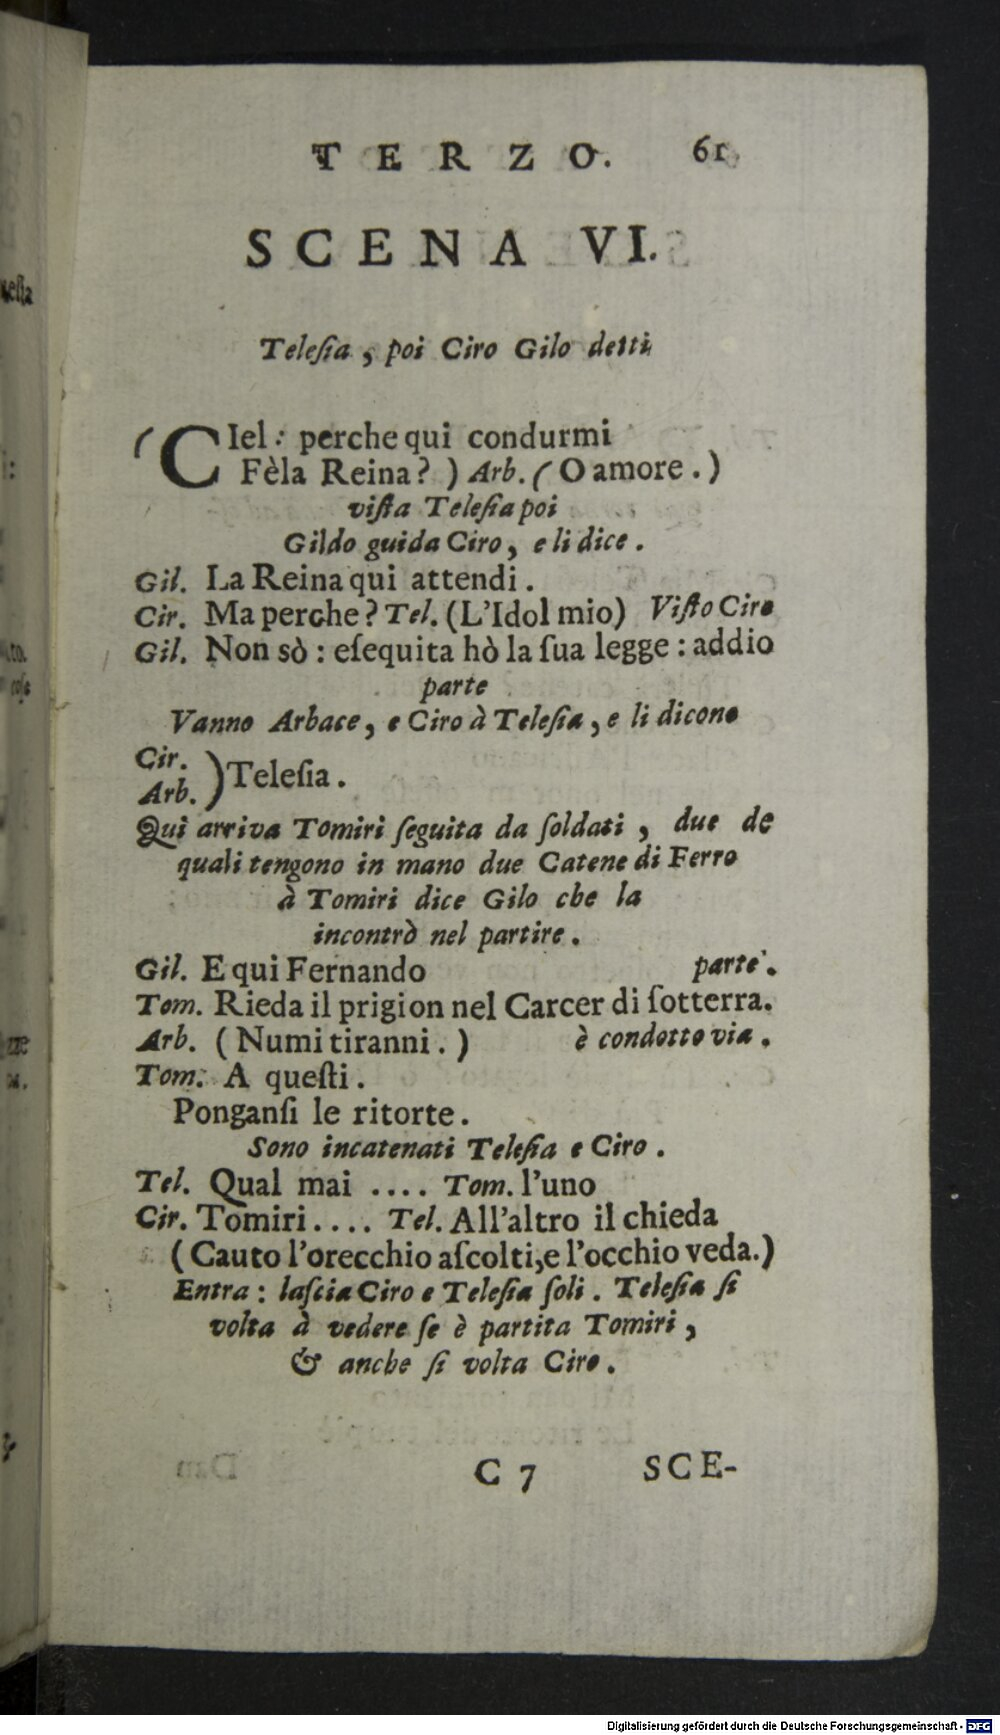 TERZO. 61
SCENA VI.
Teleſia, poi Ciro Gilo detti
(CIel: perche qui condurmi
Fèla Reina?) Arb. (O amore.)
viſta Teleſia poi
Gildo guida Ciro, e li dice.
Gil. La Reina qui attendi.
Cir. Ma perche? Tel. (L'Idol mio) Viſto Ciro
Gil. Non sò: eſequita hò la ſua legge: addio
parte
Vanno Arbace, e Ciro à Teleſia, e li dicono
Cir.
Arb. ) Teleſia.
Qui arriva Tomiri ſeguita da ſoldati, due de
quali tengono in mano due Catene di Ferro
à Tomiri dice Gilo che la
incontrò nel partire.
Gil. E qui Fernando parte.
Tom. Rieda il prigion nel Carcer di ſotterra.
Arb. (Numi tiranni.) è condotto via.
Tom. A queſti.
Ponganſi le ritorte.
Sono incatenati Teleſia e Ciro.
Tel. Qual mai .... Tom. l'uno
Cir. Tomiri.... Tel. All'altro il chieda
(Cauto l'orecchio aſcolti, e l'occhio veda.)
Entra: laſcia Ciro e Teleſia ſoli. Teleſia ſi
volta à vedere ſe è partita Tomiri,
& anche ſi volta Ciro.
C 7 SCE-
Digitalisierung gefördert durch die Deutsche Forschungsgemeinschaft - DFG